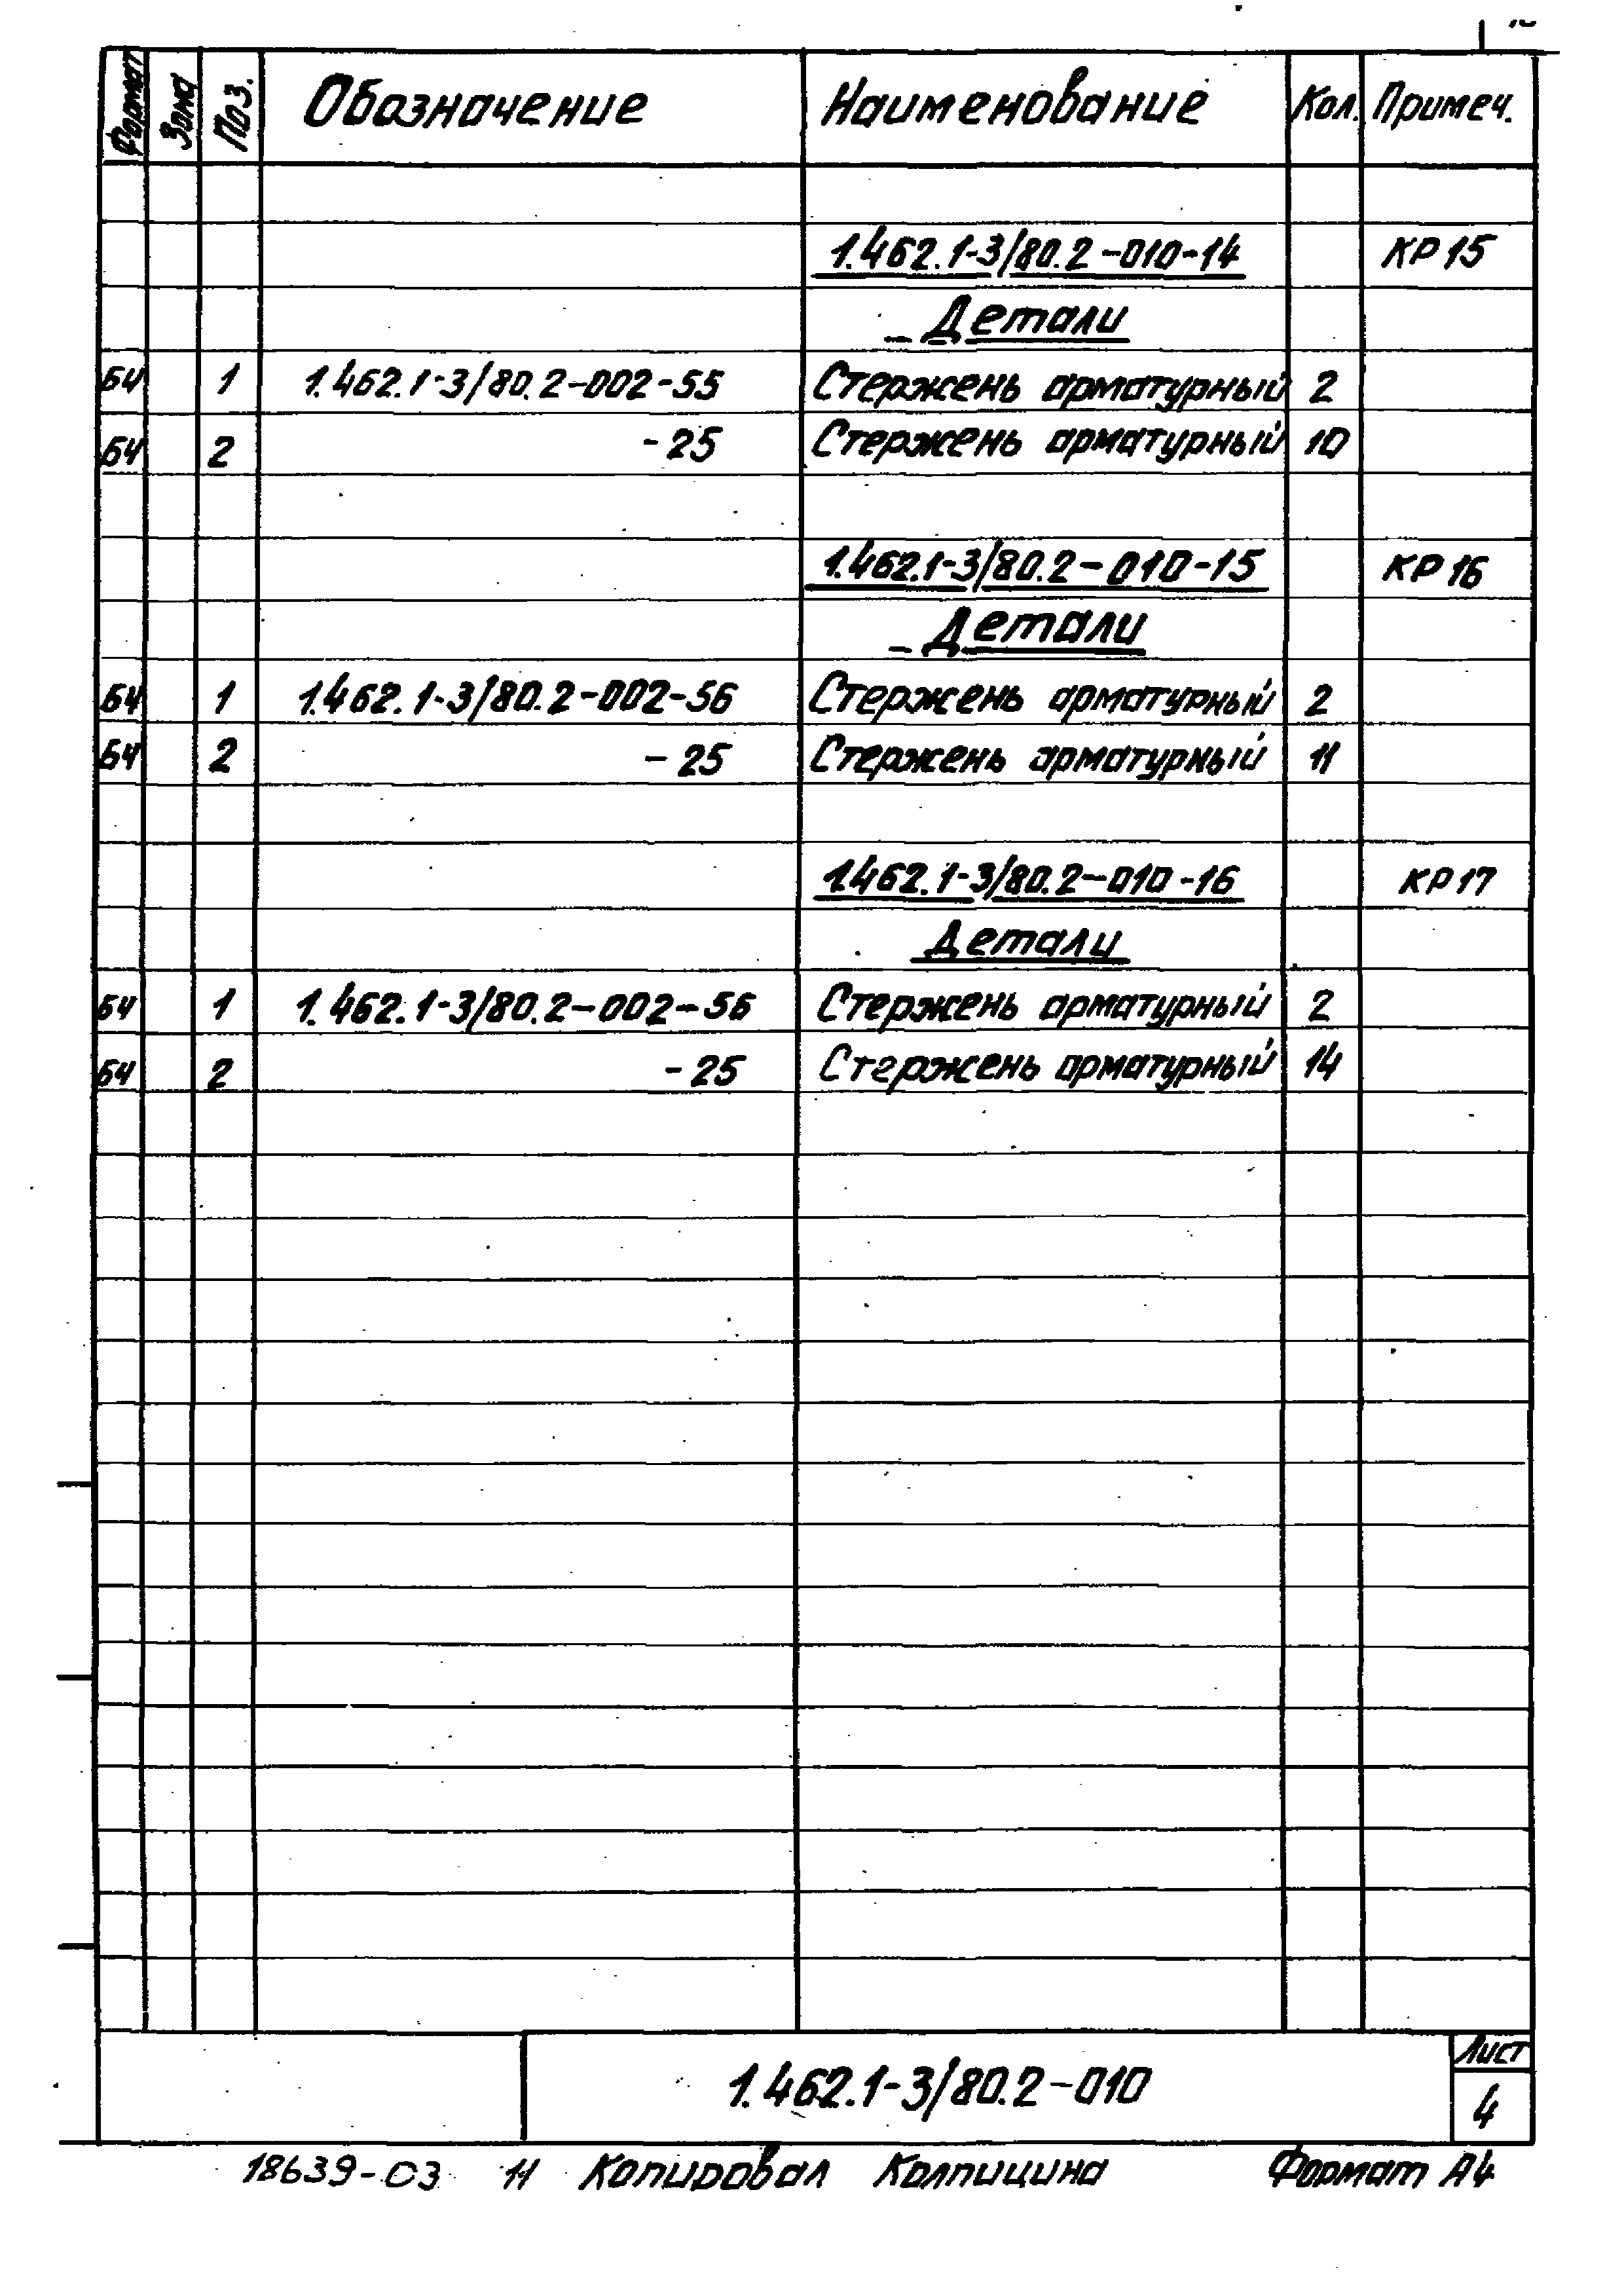 Формат Зона Поз. Обозначение Наименование Кол. Примеч.
1.462.1-3/80.2-010-14 КР15
Детали
БЧ 1 1.462.1-3/80.2-002-55 Стержень арматурный 2
БЧ 2 -25 Стержень арматурный 10
1.462.1-3/80.2-010-15 КР16
Детали
БЧ 1 1.462.1-3/80.2-002-56 Стержень арматурный 2
БЧ 2 -25 Стержень арматурный 11
1.462.1-3/80.2-010-16 КР17
Детали
БЧ 1 1.462.1-3/80.2-002-56 Стержень арматурный 2
БЧ 2 -25 Стержень арматурный 14
1.462.1-3/80.2-010
Лист
4
18639-03 11 Копировал Колпицина Формат А4